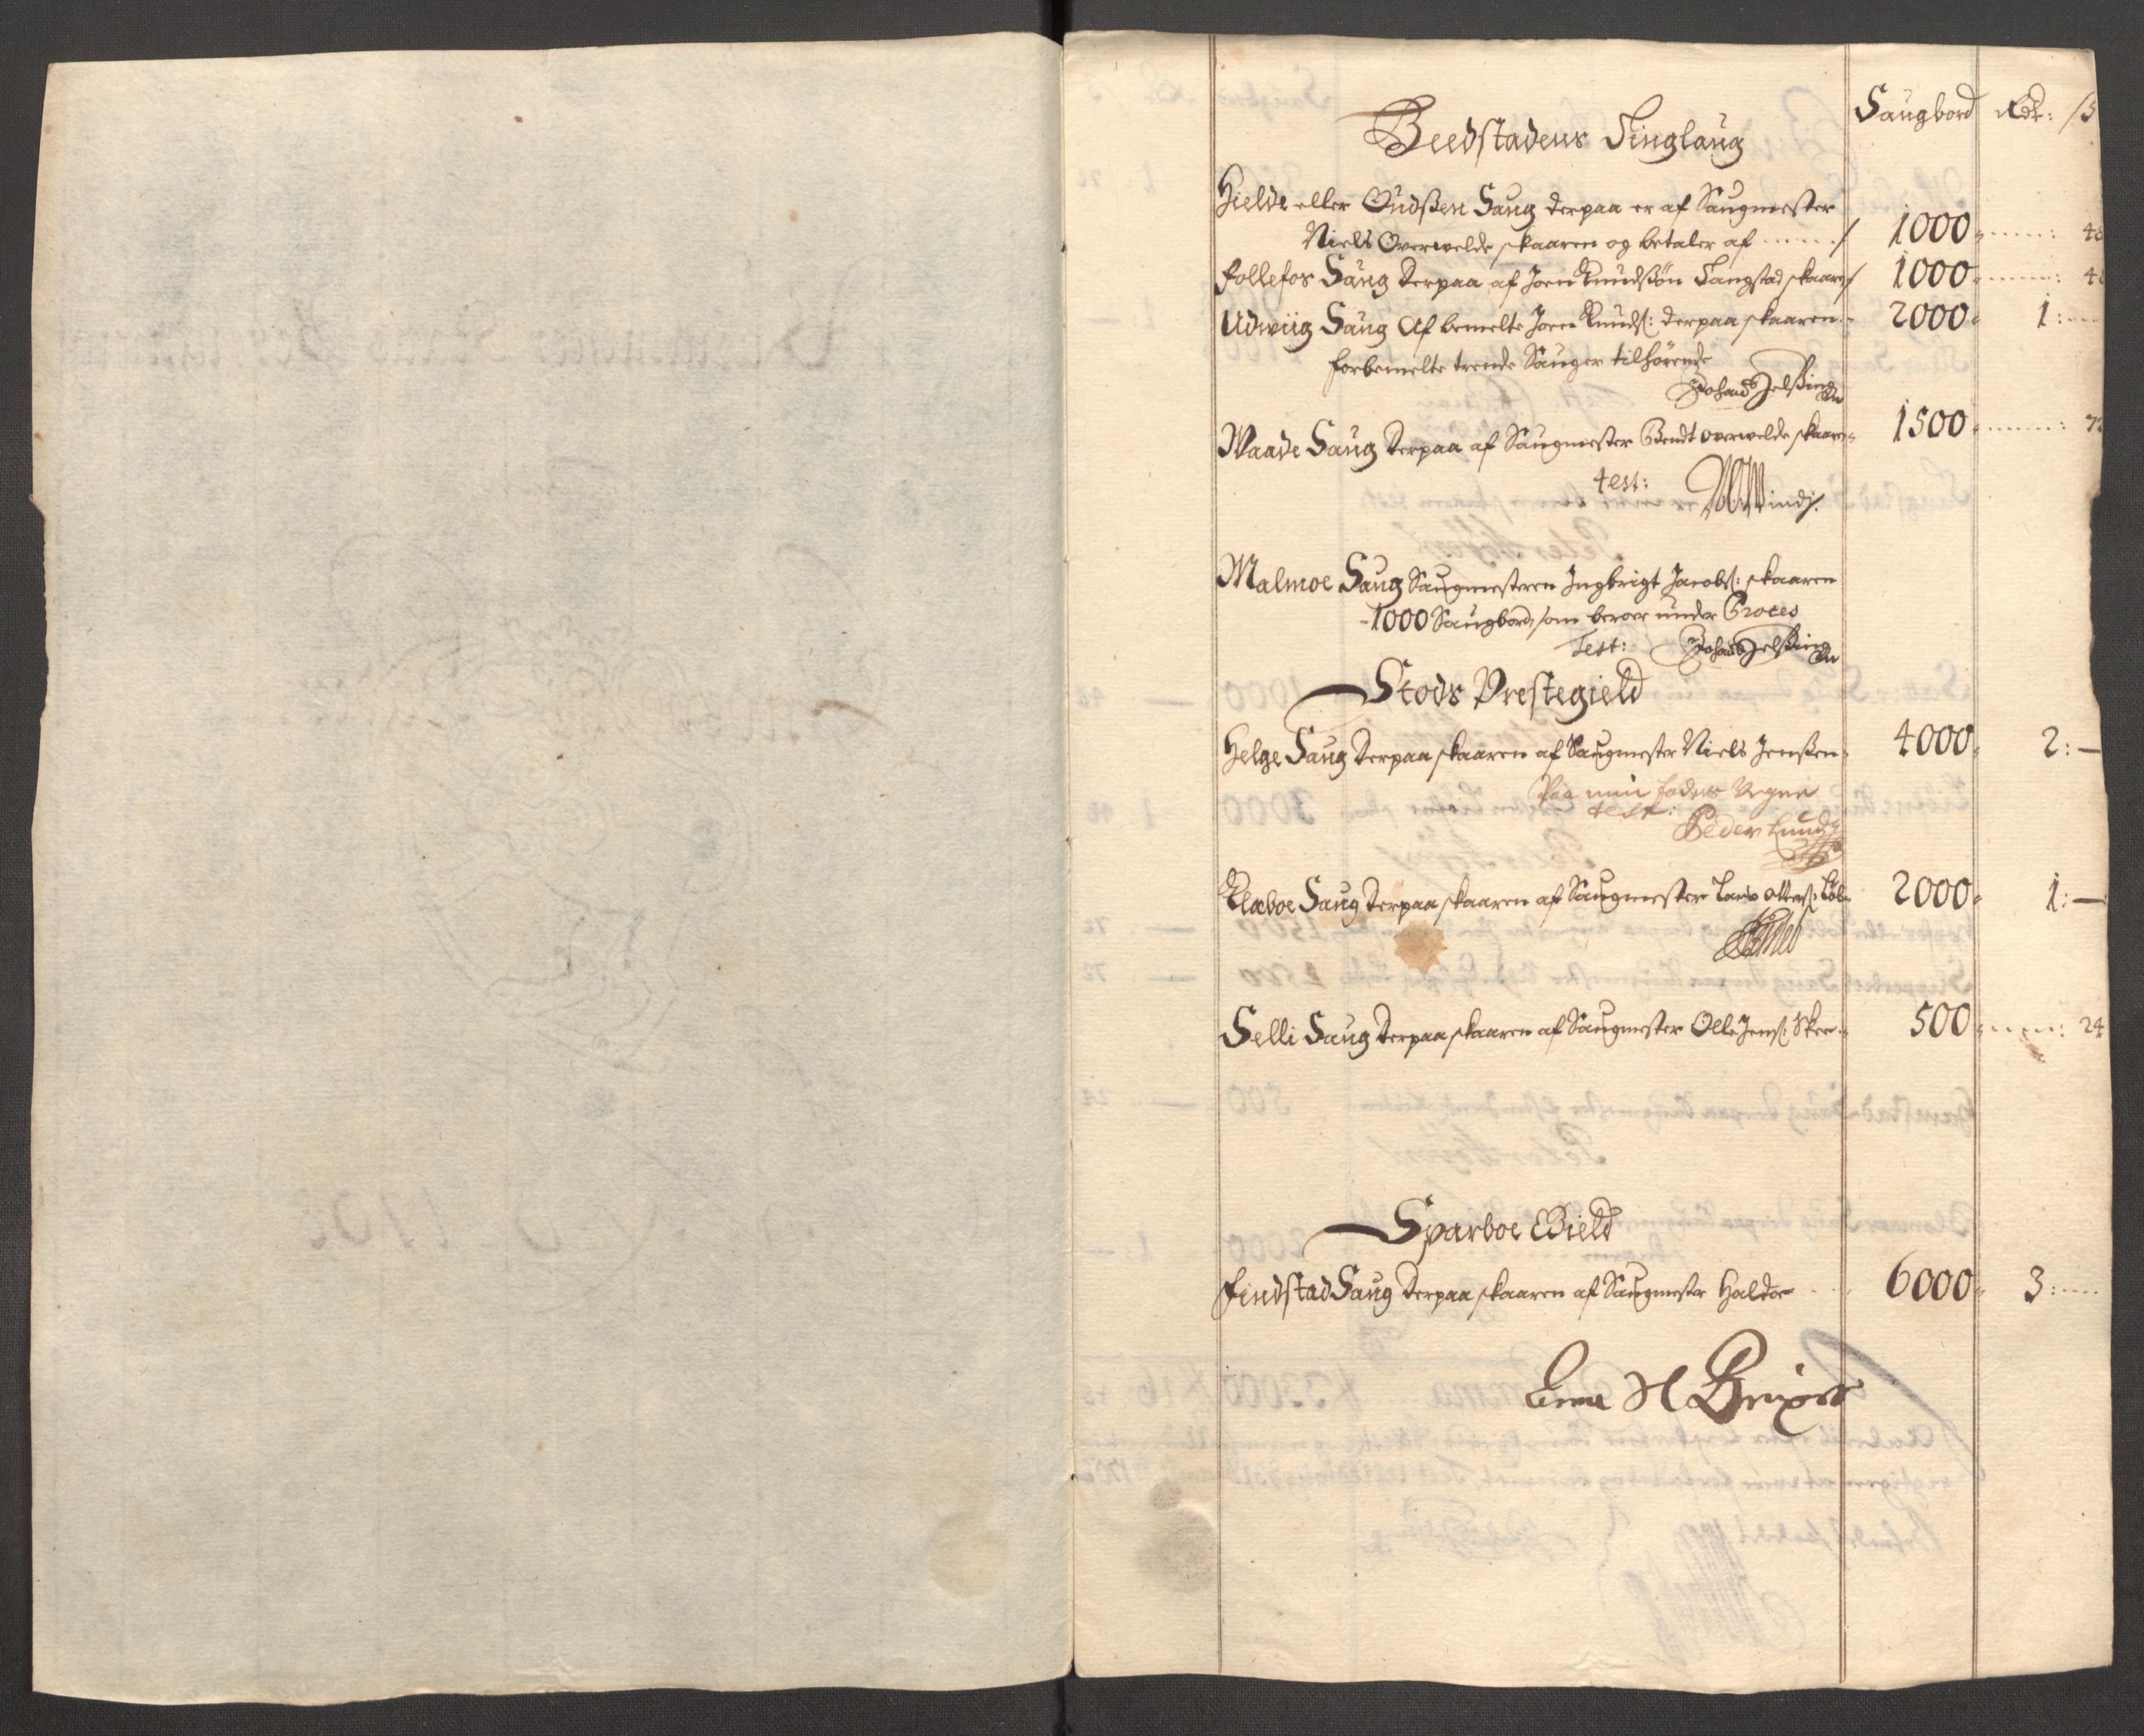 Saugbord Rdr: ß
Beedstadens Tinglaug
Hielde eller Oudßen Saug derpaa er af Saugmester
Niels Overwelde skaaren og betaler af ...... / 1000 ...... : 48
Follefos Saug derpaa af Joen Knudßøn Langstad skaaren / 1000 ...... : 48
Udwiig Saug Af bemelte Joen Knuds: derpaa skaaren 2000 1: ....
forbemelte trende Sauger tilhørende
Johan Helßing
Waade Saug derpaa af Saugmester Bendt overwelde skaaren 1500 ...... : 72
test:
Malmoe Saug Saugmesteren Ingbrigt Jacobs: skaaren
1000 Saugbord, som beroer under Proces
Test: Johan Helßing
Stods Prestegield
Helge Saug derpaa skaaren af Saugmester Niels Jenßen 4000 2: —
Paa min faders Vegne
test:
Peder Lund
Klæboe Saug derpaa skaaren af Saugmester Lars Otters: 2000 1: —
Selli Saug derpaa skaaren af Saugmester Olle Jens: Skee 500 ...... : 24
Sparboe Gield
Findstad Saug derpaa skaaren af Saugmester Haldor 6000 3: ....
Anna Sl Brixs